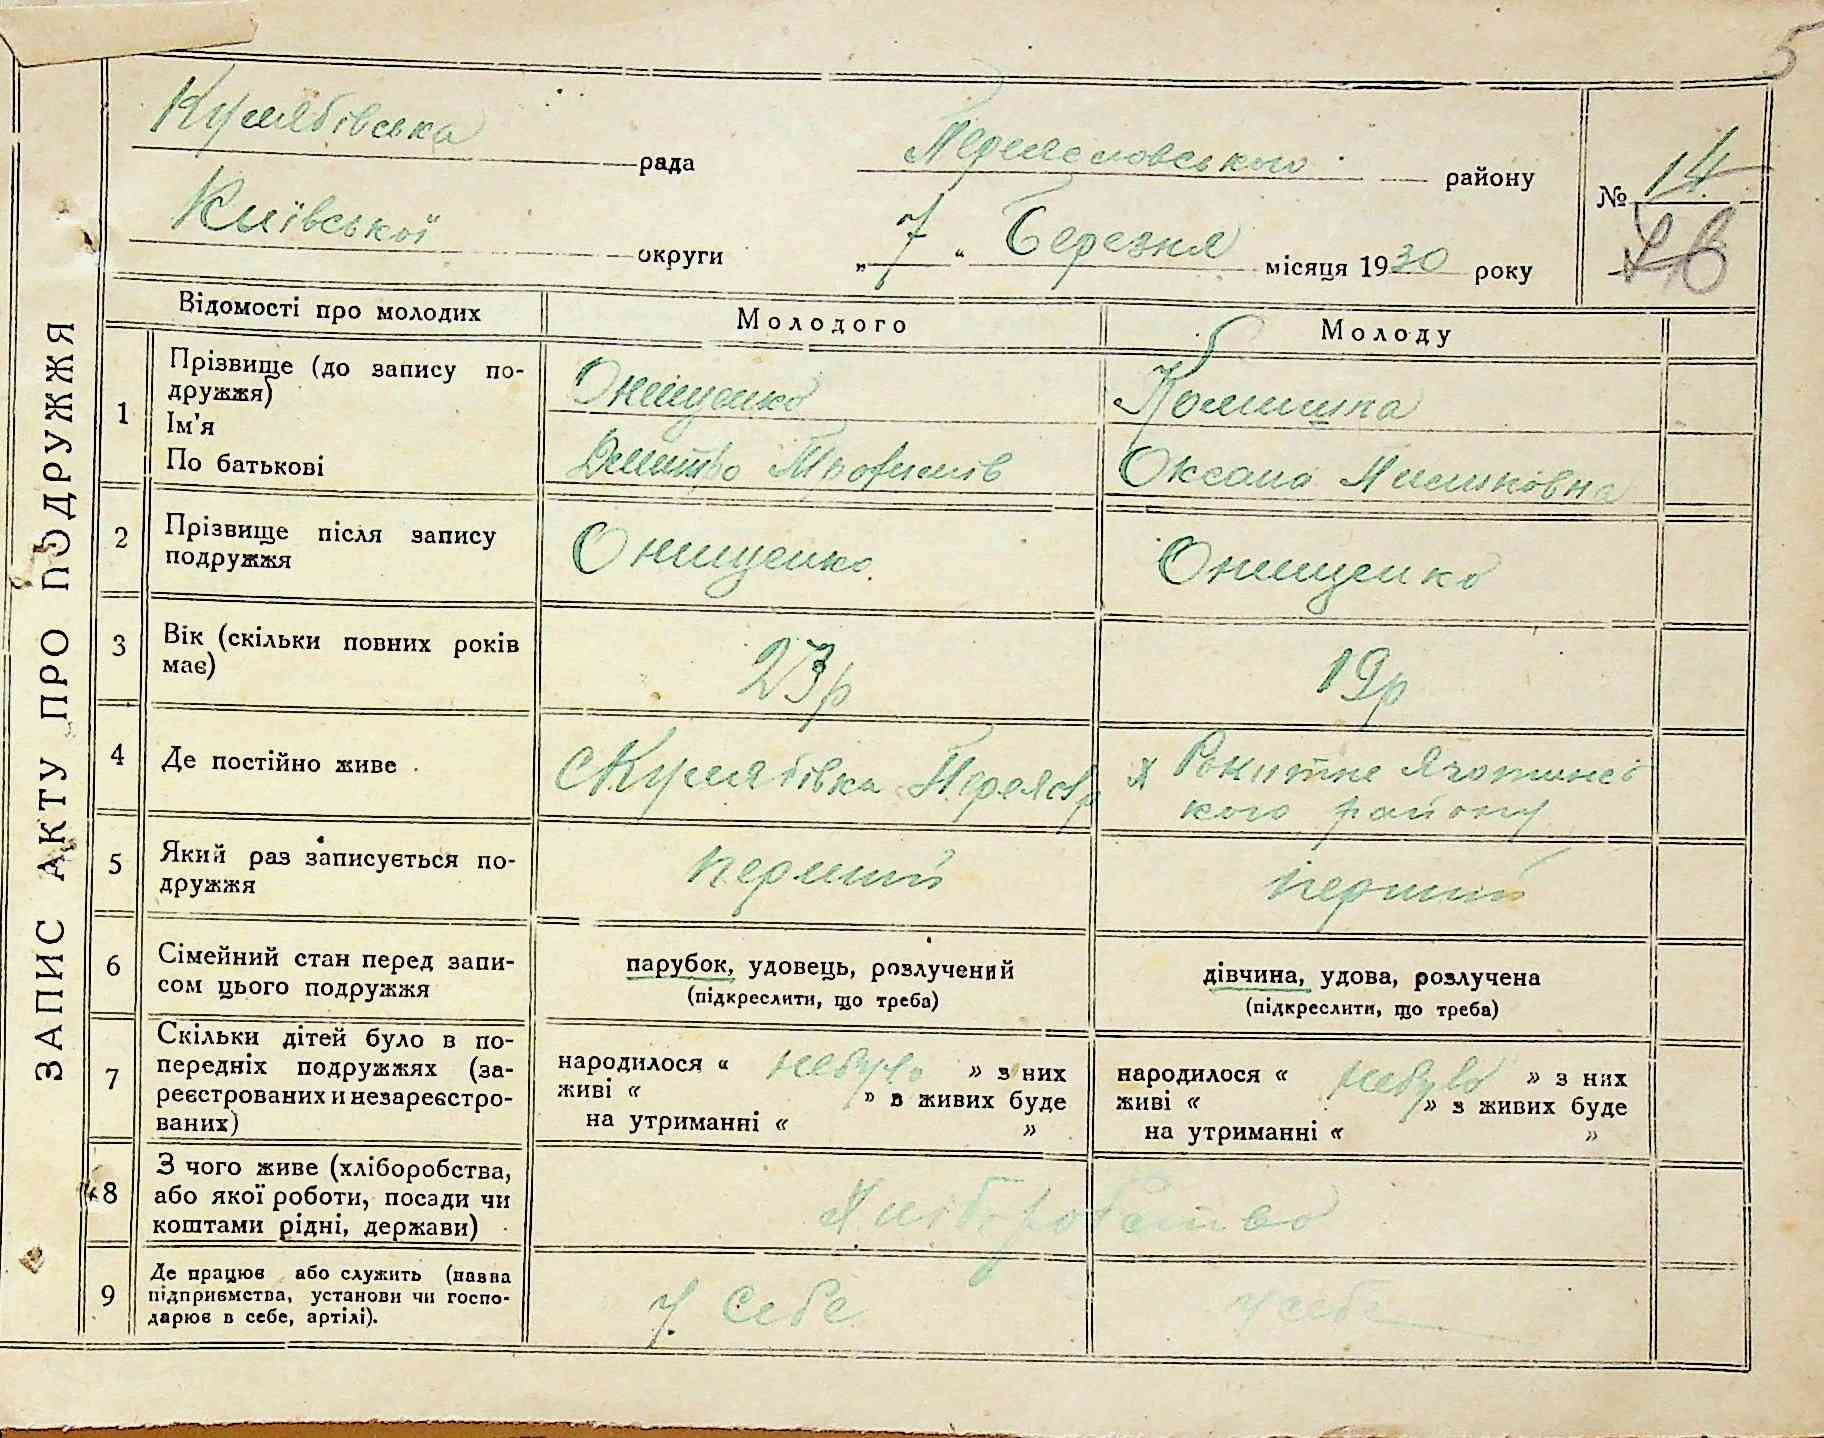 5
Кулябівська рада
району
№ 14
Київської округи
„7“ Березня місяця 1930 року
ЗАПИС АКТУ ПРО ПОДРУЖЖЯ
Відомості про молодих
Молодого
Молоду
1
Прізвище (до запису по-
дружжя)
Ім'я
По батькові
Онищенко
Дмитро Трофимів
Оксана
2
Прізвище після запису
подружжя
Онищенко
Онищенко
3
Вік (скільки повних років
має)
23р
19р
4
Де постійно живе
с Кулябівка Переяср
х Рокитне Яготинсь
кого району
5
Який раз записується по-
дружжя
перший
перший
6
Сімейний стан перед запи-
сом цього подружжя
парубок, удовець, розлучений
(підкреслити, що треба)
дівчина, удова, розлучена
(підкреслити, що треба)
7
Скільки дітей було в по-
передніх подружжях (за-
реєстрованих и незареєстро-
ваних)
народилося « небуло » з них
живі « » в живих буде
на утриманні « »
народилося « небуло » з них
живі « » з живих буде
на утриманні « »
8
З чого живе (хліборобства,
або якої роботи, посади чи
коштами рідні, держави)
Хліборобство
9
Де працює або служить (назва
підприємства, установи чи госпо-
дарює в себе, артілі).
у себе
у себе